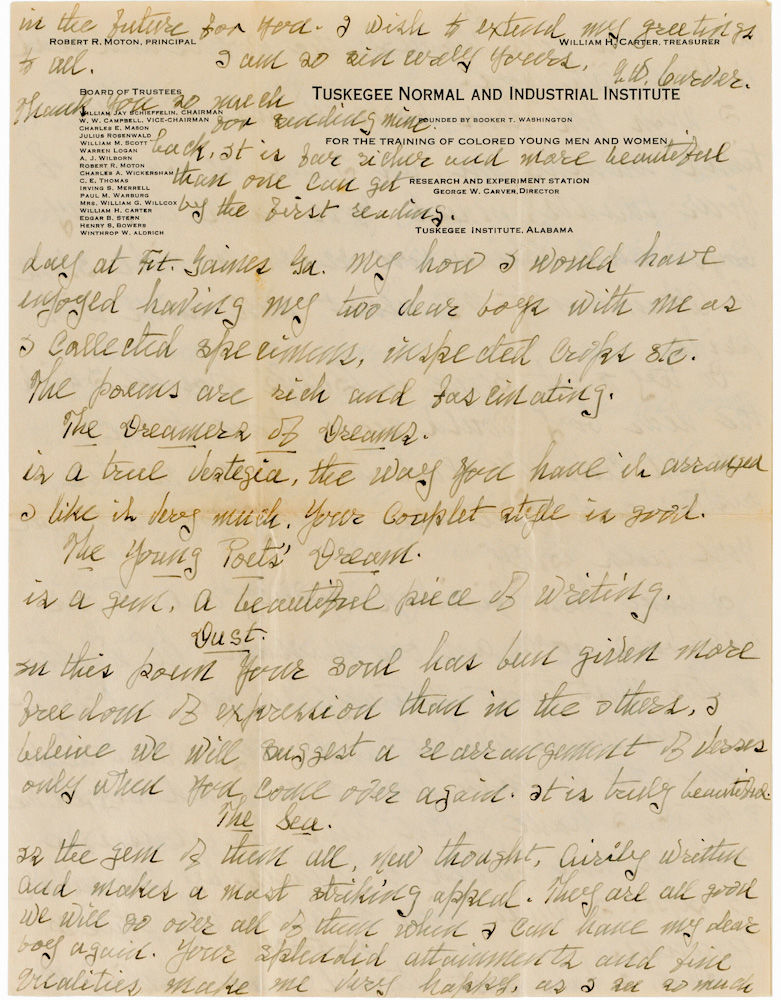 in the future for you. I wish to extend my greetings
ROBERT R. MOTON, PRINCIPAL
WILLIAM H. CARTER, TREASURER
to all. I am so sincerely yours,
G.W. Carver.
BOARD OF TRUSTEES
WILLIAM JAY SCHIEFFELIN, CHAIRMAN
W. W. CAMPBELL, VICE-CHAIRMAN
CHARLES E. MASON
JULIUS ROSENWALD
WILLIAM M. SCOTT
WARREN LOGAN
A. J. WILBORN
ROBERT R. MOTON
CHARLES A. WICKERSHAM
C. E. THOMAS
IRVING S. MERRELL
PAUL M. WARBURG
MRS. WILLIAM G. WILLCOX
WILLIAM H. CARTER
EDGAR B. STERN
HENRY S. BOWERS
WINTHROP W. ALDRICH
TUSKEGEE NORMAL AND INDUSTRIAL INSTITUTE
FOUNDED BY BOOKER T. WASHINGTON
FOR THE TRAINING OF COLORED YOUNG MEN AND WOMEN
RESEARCH AND EXPERIMENT STATION
GEORGE W. CARVER, DIRECTOR
TUSKEGEE INSTITUTE, ALABAMA
Thank you so much
for sending mine
back, it is far richer and more beautiful
than one can get
by the first reading.
day at Ft. Gaines Ga. My how I would have
enjoyed having my two dear boys with me as
I collected specimens, inspected crops etc.
The poems are rich and fascinating.
The Dreamers of Dreams.
is a true vestegia, the way you have it arranged
I like it very much. Your couplet style is good.
The Young Poets' Dream.
is a gem, a beautiful piece of writing.
Dust.
In this poem your soul has been given more
freedom of expression than in the others, I
beleive we will suggest a rearrangement of verses
only when you come over again. It is truly beautiful.
The Sea.
Is the gem of them all, new thought, airily written
and makes a most striking appeal. They are all good
we will go over all of them when I can have my dear
boy again. Your splendid attainments and fine
qualities make me very happy, as I see so much